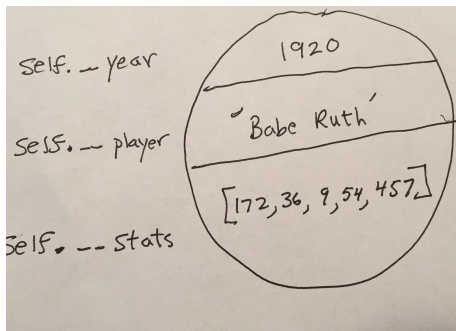 self.__year 1920
self.__player 'Babe Ruth'
self.__stats [172, 36, 9, 54, 457]